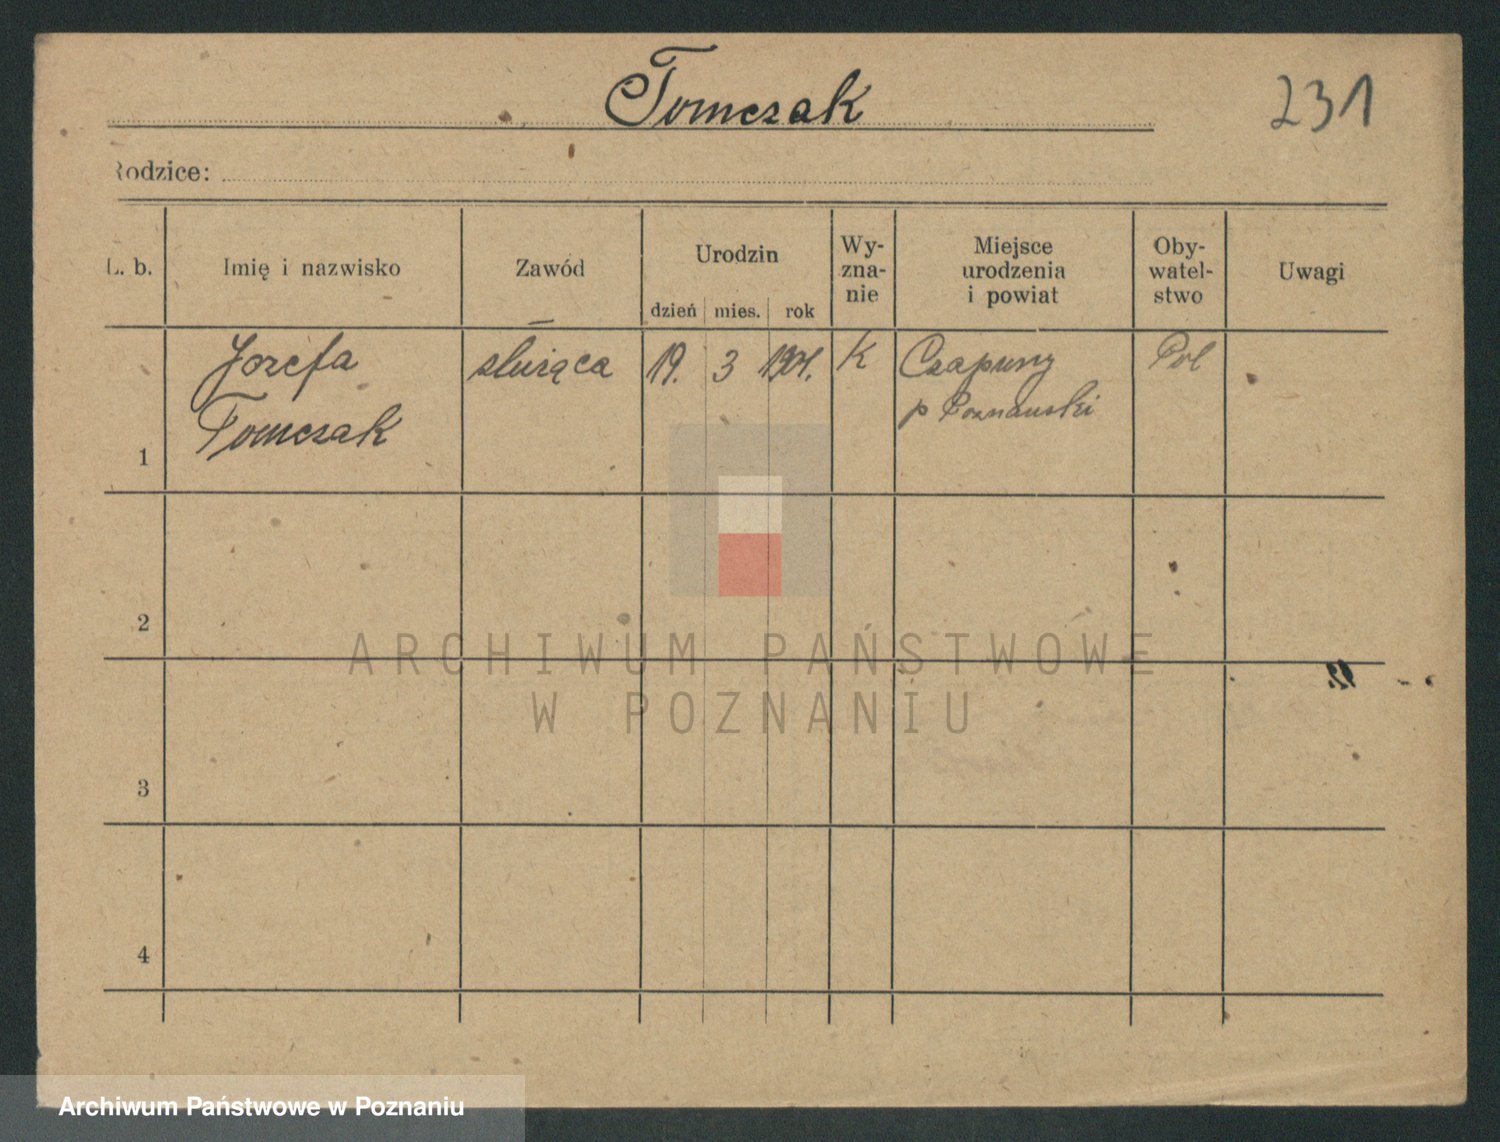 Tomczak
231
Rodzice:
L. b. Imię i nazwisko Zawód Urodzin dzień mies. rok Wy-zna-nie Miejsce urodzenia i powiat Oby-watel-stwo Uwagi
Józefa służąca 19. 3 K Pol
p Poznański
Tomczak
1
2
ARCHIWUM PAŃSTWOWE
W POZNANIU
3
4
Archiwum Państwowe w Poznaniu